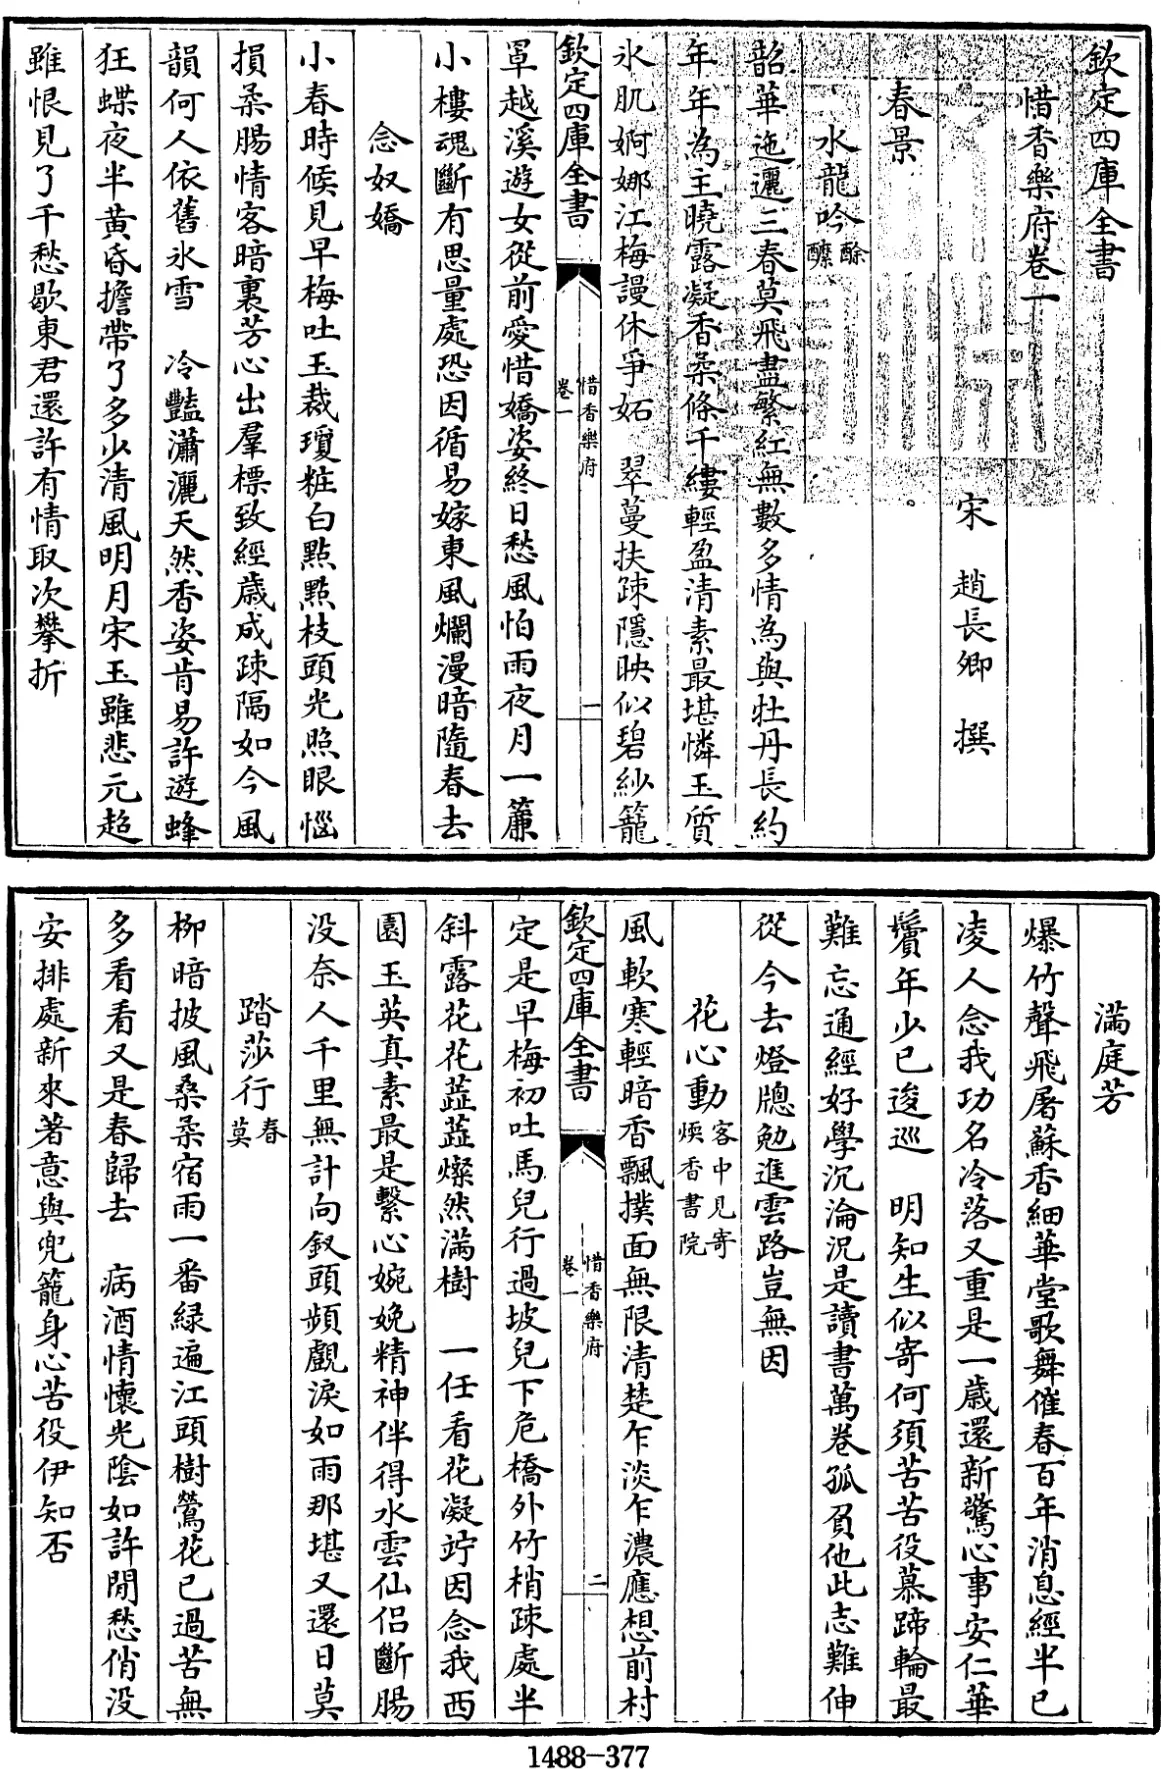 欽定四庫全書
惜香樂府卷一
宋 趙長卿 撰
春景
水龍吟酴醾
韶華迤邐三春莫飛盡繁紅無數多情為與牡丹長約
年年為主曉露凝香柔條千縷輕盈清素最堪憐玉質
氷肌婀娜江梅謾休爭妬 翠蔓扶踈隱映似碧紗籠
欽定四庫全書
惜香樂府
卷一
一
罩越溪遊女從前愛惜嬌姿終日愁風怕雨夜月一簾
小樓魂斷有思量處恐因循易嫁東風爛漫暗隨春去
念奴嬌
小春時候見早梅吐玉裁瓊粧白點點枝頭光照眼惱
損柔腸情客暗裏芳心出羣標致經歲成踈隔如今風
韻何人依舊氷雪 冷豔瀟灑天然香姿肯易許遊蜂
狂蝶夜半黃昏擔帶了多少清風明月宋玉雖悲元超
雖恨見了千愁歇東君還許有情取次攀折
滿庭芳
爆竹聲飛屠蘇香細華堂歌舞催春百年消息經半已
凌人念我功名冷落又重是一歲還新驚心事安仁華
鬢年少已逡巡 明知生似寄何須苦苦役慕蹄輪最
難忘通經好學沉淪況是讀書萬卷孤負他此志難伸
從今去燈牕勉進雲路豈無因
花心動客中見寄㬉香書院
風軟寒輕暗香飄撲面無限清楚乍淡乍濃應想前村
欽定四庫全書
惜香樂府
卷一
二
定是早梅初吐馬兒行過坡兒下危橋外竹梢踈處半
斜露花花蕋蕋燦然滿樹 一任看花凝竚因念我西
園玉英真素最是繫心婉娩精神伴得水雲仙侶斷腸
没奈人千里無計向釵頭頻覷淚如雨那堪又還日莫
踏莎行春莫
柳暗披風桑柔宿雨一番緑遍江頭樹鶯花已過苦無
多看看又是春歸去 病酒情懷光陰如許閒愁俏没
安排處新來著意與兜籠身心苦役伊知否
1488—377